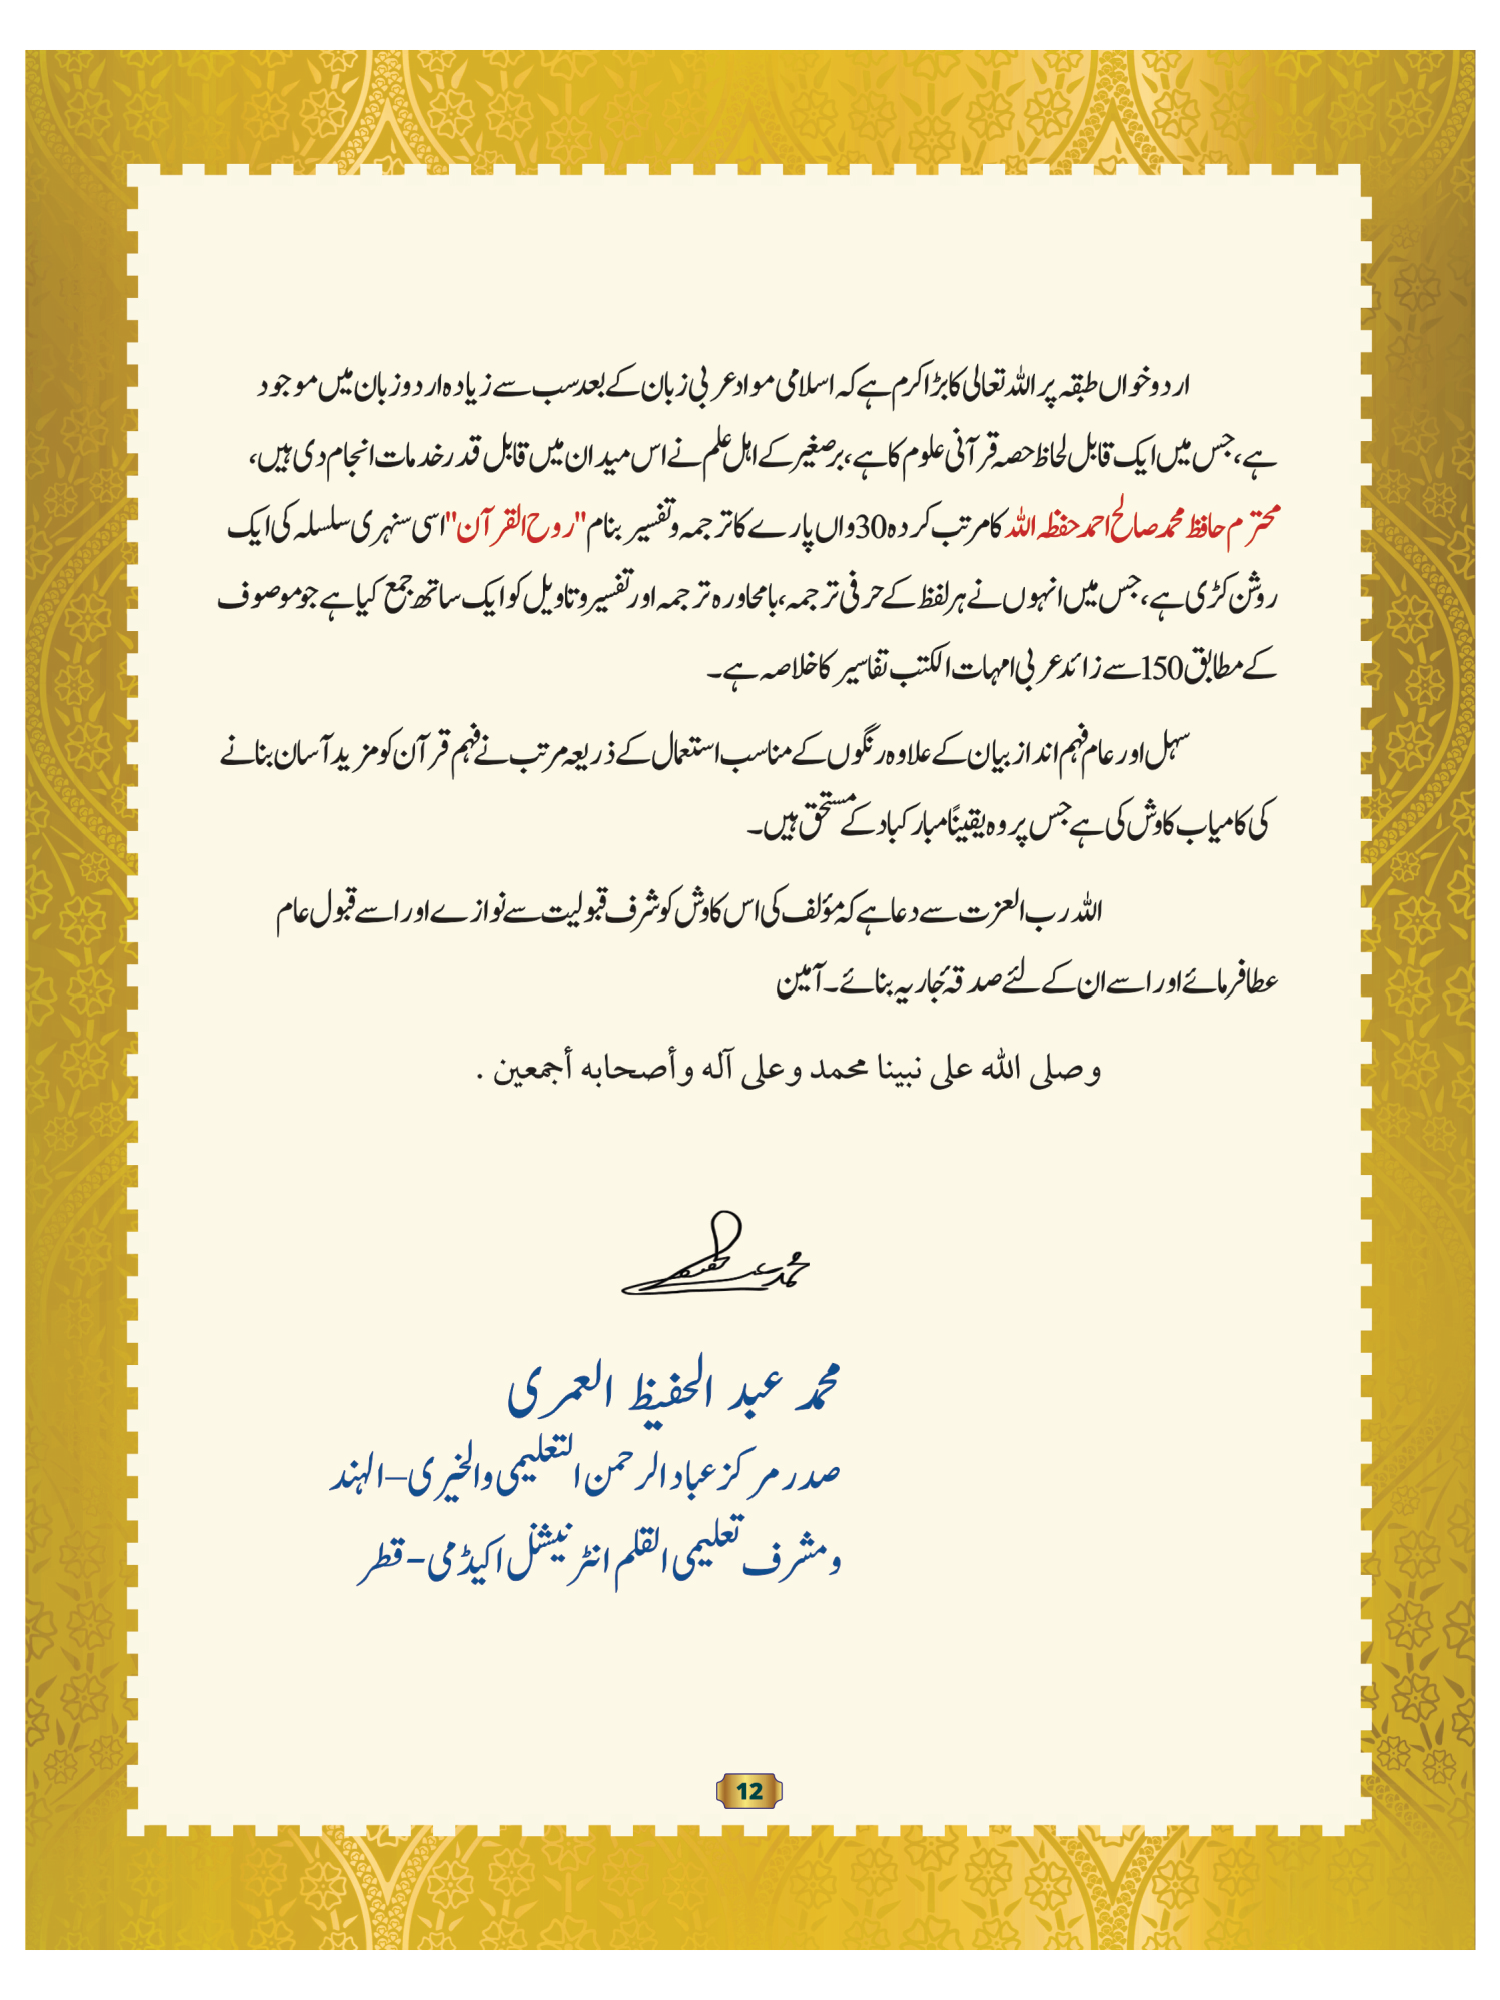 اردو خواں طبقہ پر اللہ تعالی کا بڑا کرم ہے کہ اسلامی مواد عربی زبان کے بعد سب سے زیادہ اردو زبان میں موجود
ہے، جس میں ایک قابل لحاظ حصہ قرآنی علوم کا ہے، برصغیر کے اہل علم نے اس میدان میں قابل قدر خدمات انجام دی ہیں،
محترم حافظ محمد صالح احمد حفظہ اللہ کا مرتب کردہ 30واں پارے کا ترجمہ و تفسیر بنام "روح القرآن" اسی سنہری سلسلہ کی ایک
روشن کڑی ہے، جس میں انہوں نے ہر لفظ کے حرفی ترجمہ، بامحاورہ ترجمہ اور تفسیر و تاویل کو ایک ساتھ جمع کیا ہے جو موصوف
کے مطابق 150 سے زائد عربی امہات الکتب تفاسیر کا خلاصہ ہے۔
سہل اور عام فہم انداز بیان کے علاوہ رنگوں کے مناسب استعمال کے ذریعہ مرتب نے فہم قرآن کو مزید آسان بنانے
کی کامیاب کاوش کی ہے جس پر وہ یقینًا مبارکباد کے مستحق ہیں۔
اللہ رب العزت سے دعا ہے کہ مؤلف کی اس کاوش کو شرف قبولیت سے نوازے اور اسے قبول عام
عطا فرمائے اور اسے ان کے لئے صدقۂ جاریہ بنائے۔ آمین
وصلى الله على نبينا محمد وعلى آله وأصحابه أجمعين .
محمد عبد الحفیظ العمری
صدر مرکز عباد الرحمن التعلیمی والخیری – الہند
و مشرف تعلیمی القلم انٹرنیشنل اکیڈمی - قطر
12